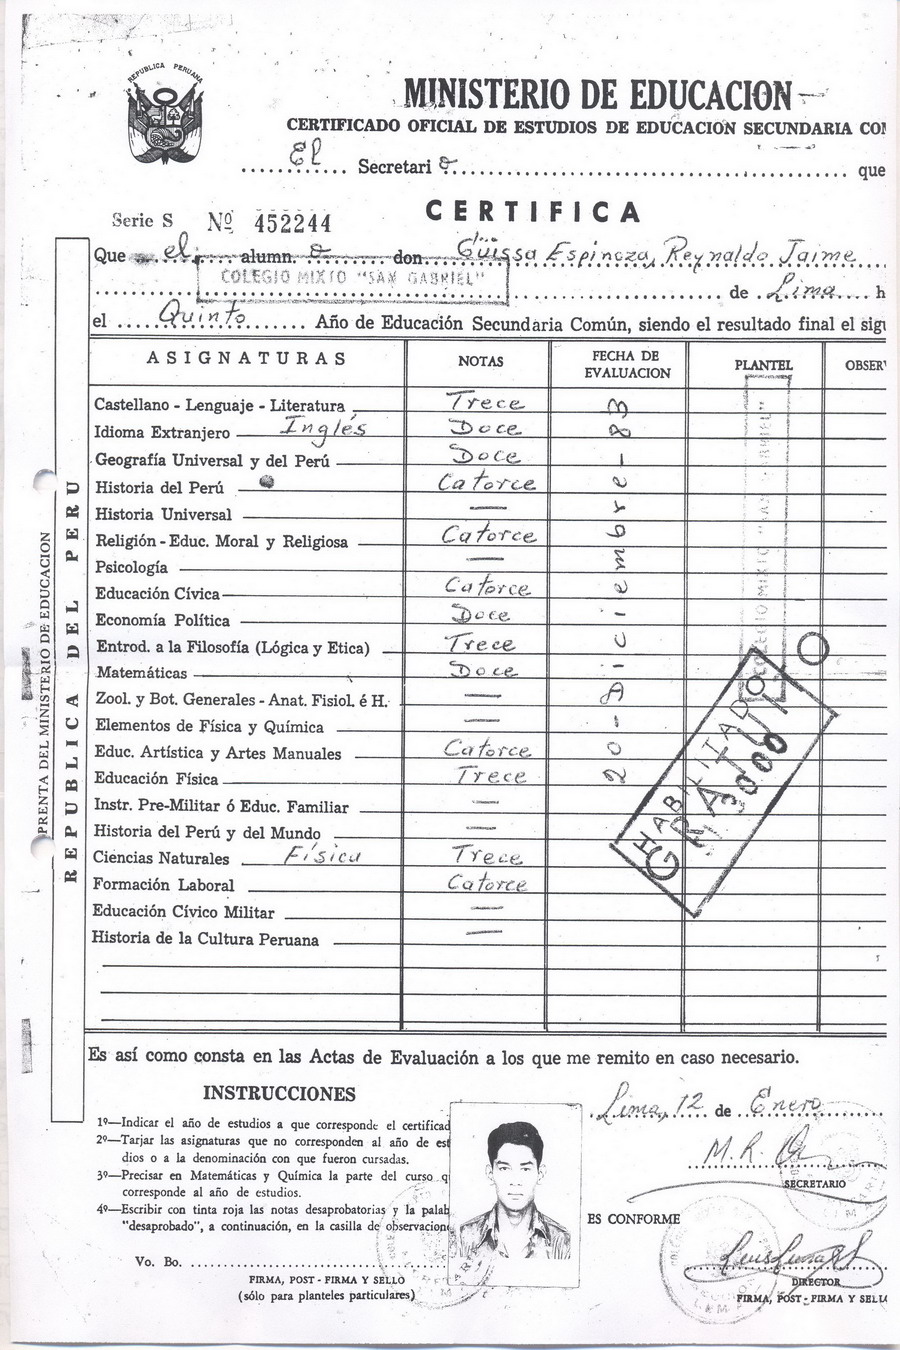 REPUBLICA PERUANA
MINISTERIO DE EDUCACION
CERTIFICADO OFICIAL DE ESTUDIOS DE EDUCACION SECUNDARIA CO
El Secretari o que
CERTIFICA
Serie S Nº 452244
Que el alumn o don Güissa Espinoza, Reynaldo Jaime
COLEGIO MIXTO "SAN GABRIEL"
de Lima h
el Quinto Año de Educación Secundaria Común, siendo el resultado final el sigu
ASIGNATURAS NOTAS FECHA DE EVALUACION PLANTEL OBSER
Castellano - Lenguaje - Literatura Trece
Idioma Extranjero Inglés Doce
Geografía Universal y del Perú Doce
Historia del Perú Catorce
Historia Universal —
Religión - Educ. Moral y Religiosa Catorce
Psicología —
Educación Cívica Catorce
Economía Política Doce
Entrod. a la Filosofía (Lógica y Etica) Trece
Matemáticas Doce
Zool. y Bot. Generales - Anat. Fisiol. é H. —
Elementos de Física y Química —
Educ. Artística y Artes Manuales Catorce
Educación Física Trece
Instr. Pre-Militar ó Educ. Familiar —
Historia del Perú y del Mundo —
Ciencias Naturales Física Trece
Formación Laboral Catorce
Educación Cívico Militar —
Historia de la Cultura Peruana —
20 - Diciembre - 83
COLEGIO MIXTO "SAN GABRIEL"
HABILITADO
GRATUITO
REPUBLICA DEL PERU
PRENTA DEL MINISTERIO DE EDUCACION
Es así como consta en las Actas de Evaluación a los que me remito en caso necesario.
INSTRUCCIONES
1º—Indicar el año de estudios a que corresponde el certificad
2º—Tarjar las asignaturas que no corresponden al año de est
dios o a la denominación con que fueron cursadas.
3º—Precisar en Matemáticas y Química la parte del curso q
corresponde al año de estudios.
4º—Escribir con tinta roja las notas desaprobatorias y la palab
"desaprobado", a continuación, en la casilla de observacione
Vo. Bo.
FIRMA, POST - FIRMA Y SELLO
(sólo para planteles particulares)
Lima, 12 de Enero
SECRETARIO
ES CONFORME
DIRECTOR
FIRMA, POST - FIRMA Y SELL